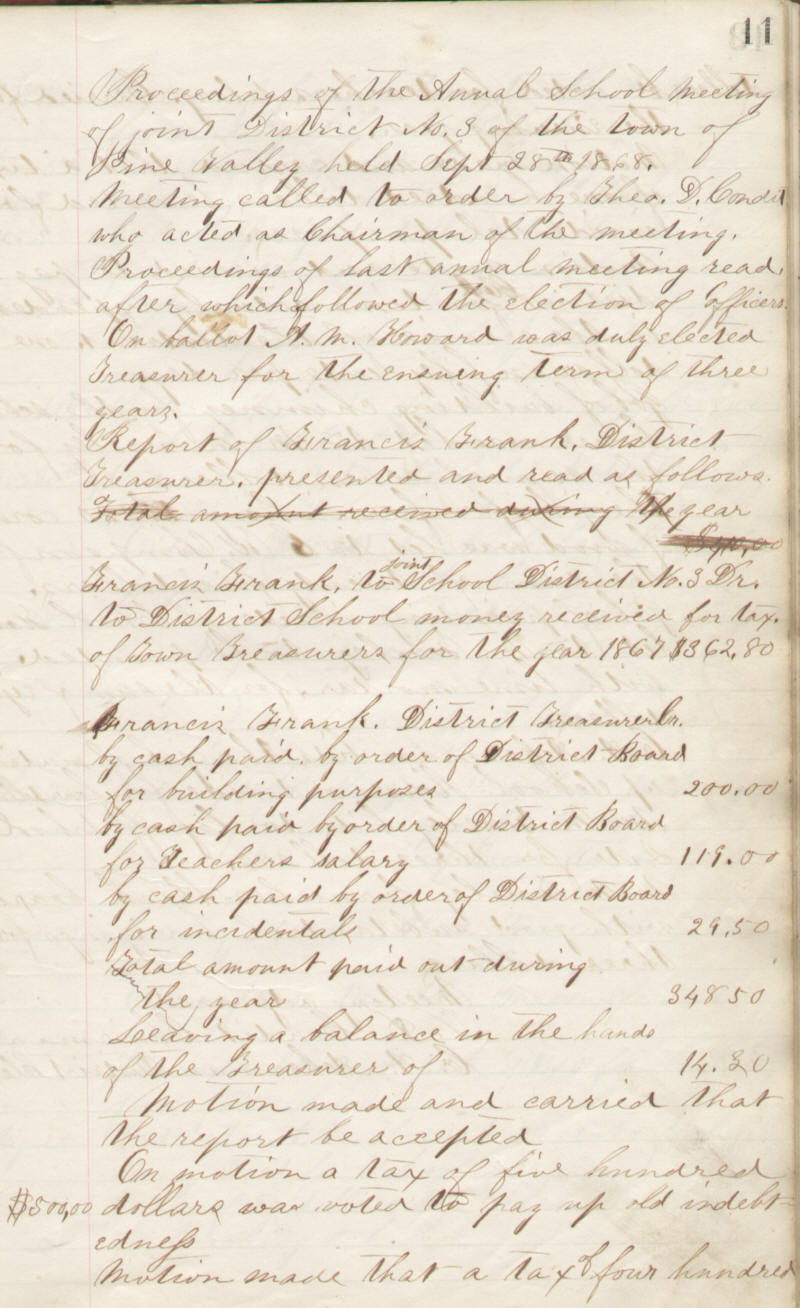 11
Proceedings of the Anual School Meeting
of joint District No. 3 of the town of
Pine Valley held Sept 28th 1868.
Meeting called to order by Theo. D. Condit
who acted as Chairman of the meeting.
Proceedings of last annual meeting read,
after which followed the election of officers.
On ballot A. M. Howard was duly elected
Treasurer for the ensuing term of three
years.
Report of Francis Frank, District
Treasurer, presented and read as follows.
Total amount received during the year
Francis Frank, to joint School District No. 3 Dr.
to District School money received for tax.
of Town Treasurers for the year 1867 $362,80
Francis Frank. District Treasurer Cr.
by cash paid. by order of District Board
for building purposes 200.00
by cash paid by order of District Board
for Teachers salary 119.00
by cash paid by order of District Board
for incidentals 29,50
Total amount paid out during
the year 348 50
Leaving a balance in the hands
of the Treasurer of 14.30
Motion made and carried that
the report be accepted
On motion a tax of five hundred
$500,00 dollars was voted to pay up old indebt-
edness
Motion made that a tax of four hundred